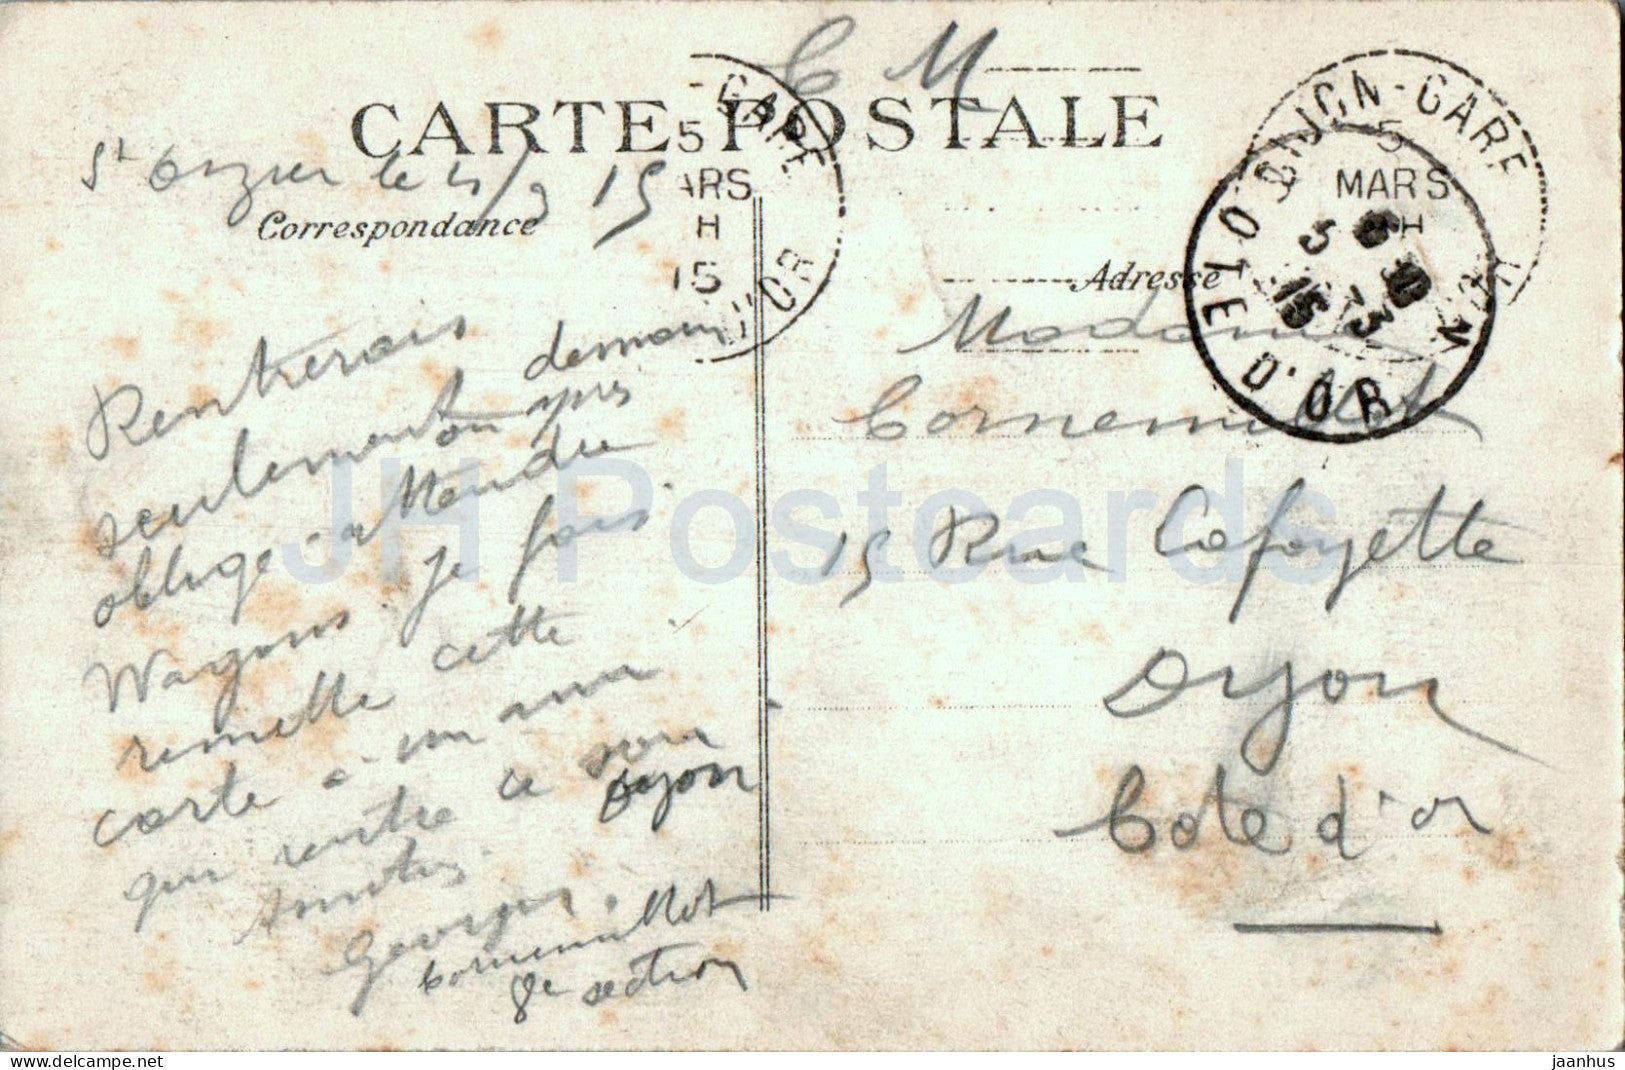 C M
CARTE POSTALE
-GARE
5
ARS
H
15
D'OR
DIJON-GARE
5
MARS
H
5 3
15
COTE D'OR
St le 4/3 15
Correspondance
Adresse
Rentrerais
seulement demain
on est
oblige attendre
Wagons je fais
remettre cette
carte a un ami
qui rentre ce soir
Dijon
Amities.
Georges.
Cornemillot
8e section
Madame
Cornemillot
15 Rue Lafayette
Dijon
Cote d'or
JH Postcards
www.delcampe.net
jaanhus